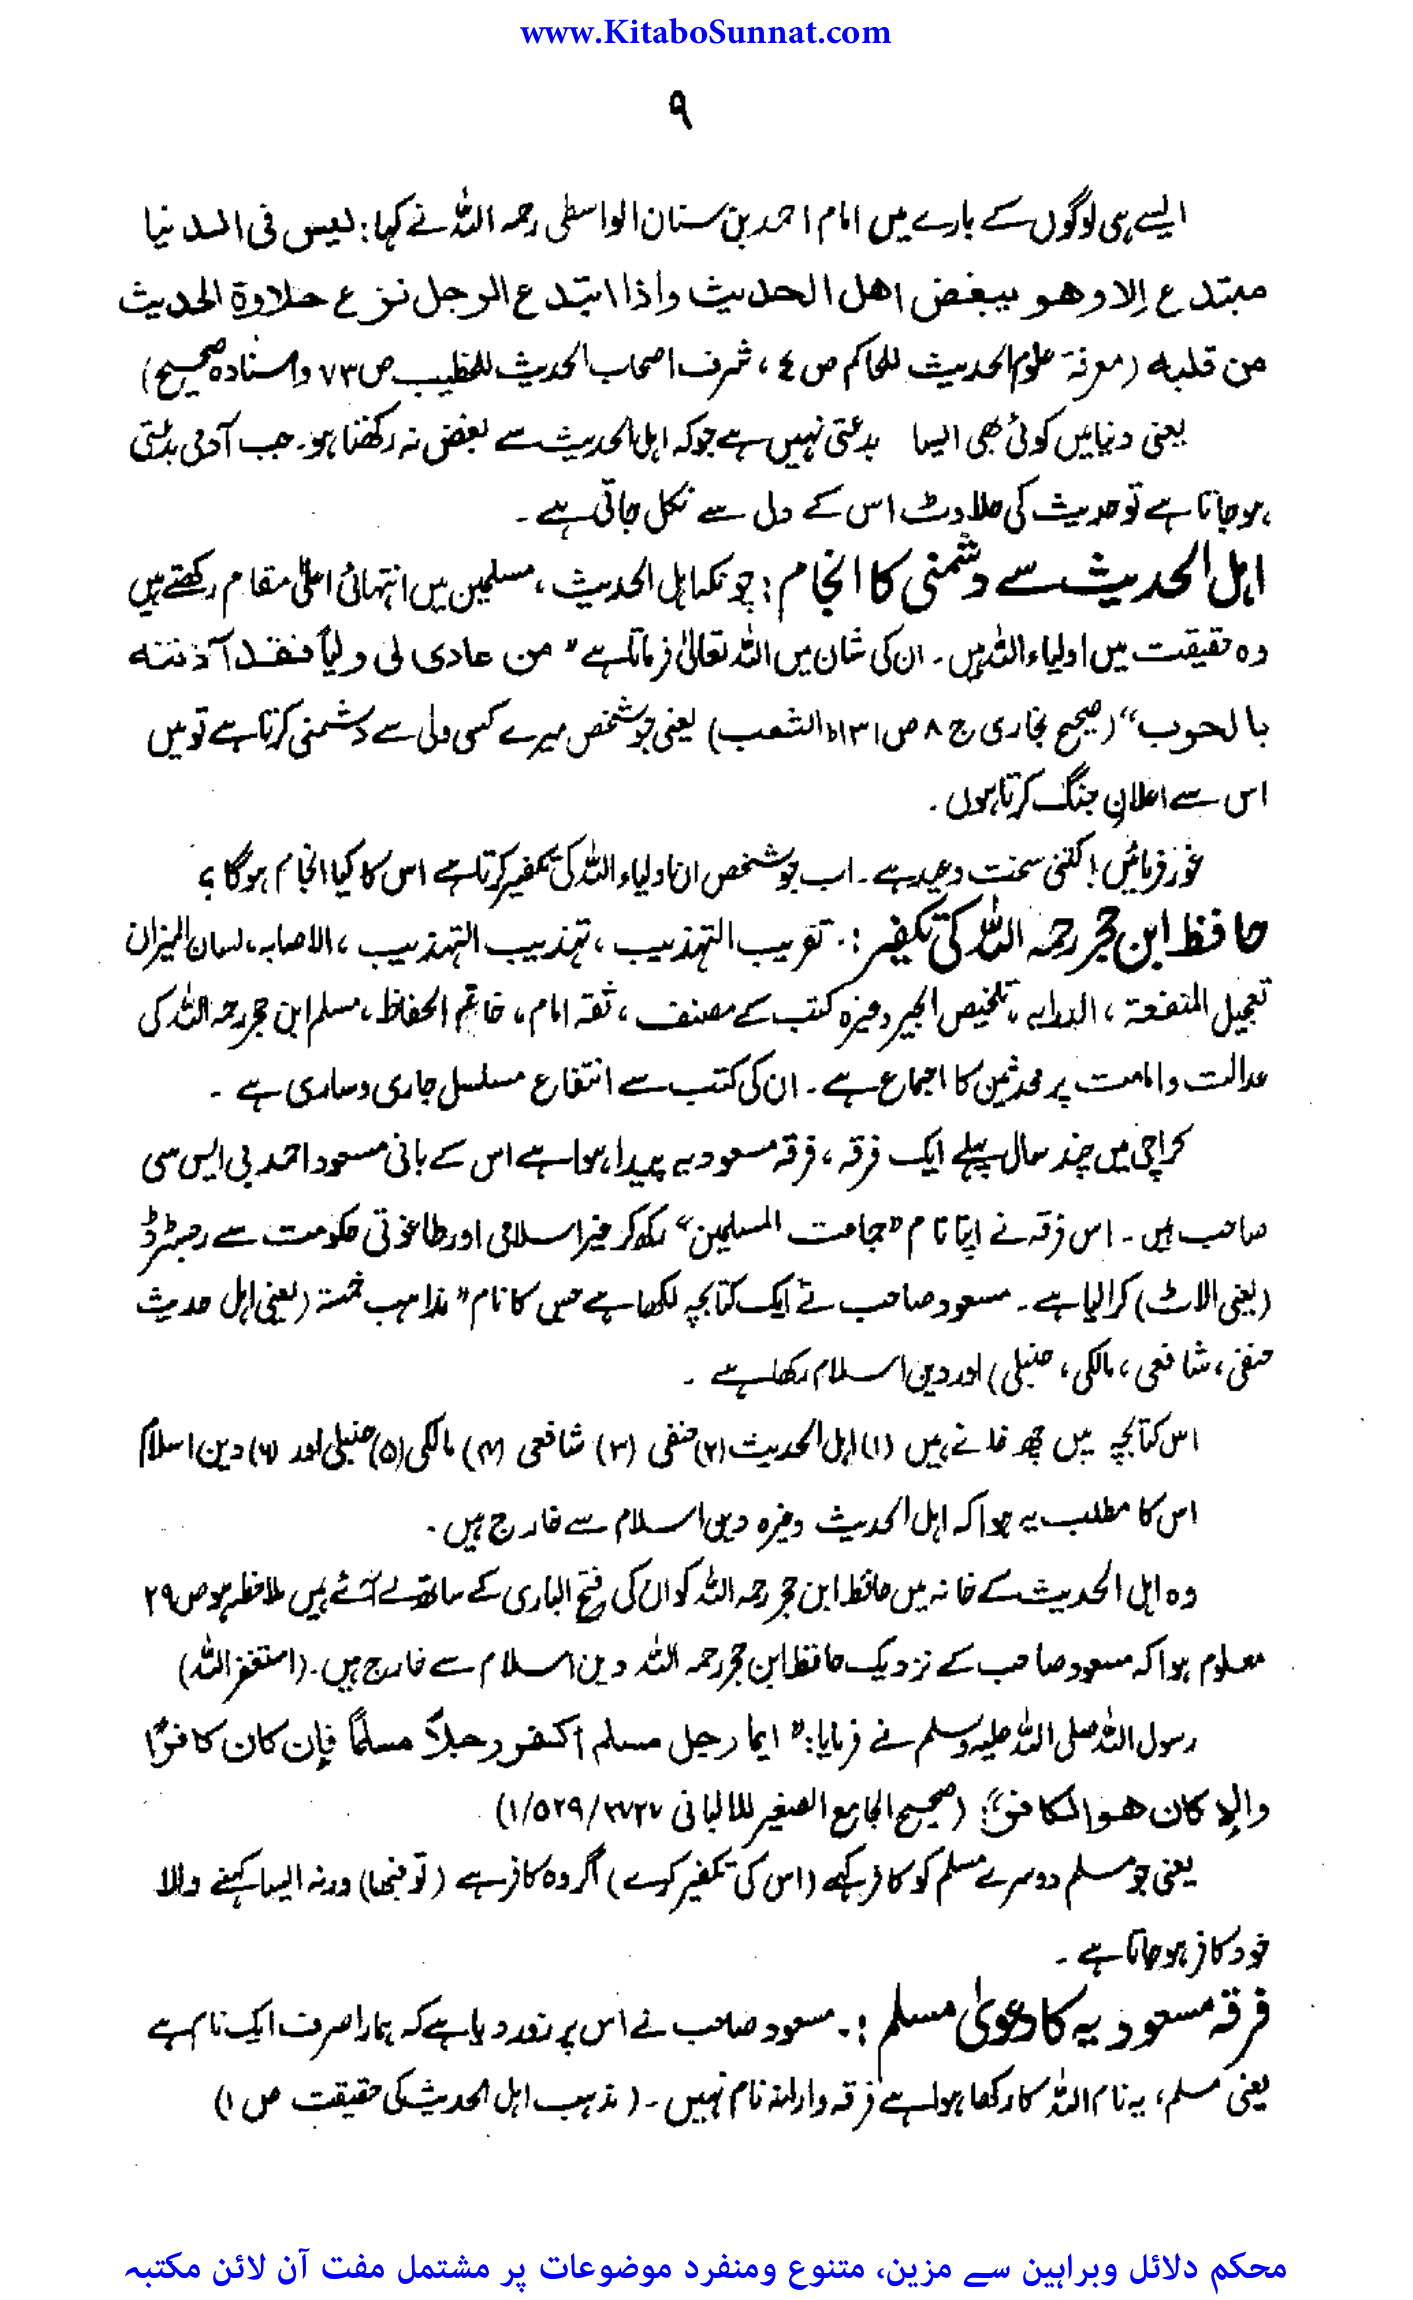 www.KitaboSunnat.com
۹
ایسے ہی لوگوں کے بارے میں امام احمد بن سنان الواسطی رحمہ اللہ نے کہا: لیس فی الدنیا
مبتدع إلا وهو یبغض اهل الحدیث واذا ابتدع الرجل نزع حلاوة الحدیث
من قلبه (معرفۃ علوم الحدیث للحاکم ص ٤، شرف اصحاب الحدیث للخطیب ص ۷۳ واسنادہ صحیح)
یعنی دنیا میں کوئی بھی ایسا بدعتی نہیں ہے جو کہ اہل الحدیث سے بغض نہ رکھتا ہو۔ جب آدمی بدعتی
ہو جاتا ہے تو حدیث کی حلاوت اس کے دل سے نکل جاتی ہے۔
اہل الحدیث سے دشمنی کا انجام: چونکہ اہل الحدیث، مسلمین میں انتہائی اعلیٰ مقام رکھتے ہیں
وہ حقیقت میں اولیاء اللہ ہیں۔ ان کی شان میں اللہ تعالیٰ فرماتا ہے "من عادی لی ولیاً فقد آذنته
بالحرب" (صحیح بخاری ج ۸ ص ۱۳۱ ط الشعب) یعنی جو شخص میرے کسی ولی سے دشمنی کرتا ہے تو میں
اس سے اعلان جنگ کرتا ہوں۔
غور فرمائیں! کتنی سخت وعید ہے۔ اب جو شخص ان اولیاء اللہ کی تکفیر کرتا ہے اس کا کیا انجام ہوگا؟
حافظ ابن حجر رحمہ اللہ کی تکفیر:۔ تقریب التہذیب، تہذیب التہذیب، الاصابہ، لسان المیزان
تعجیل المنفعۃ، الدرایہ، تلخیص الحبیر وغیرہ کتب کے مصنف، ثقہ امام، خاتم الحفاظ، مسلم ابن حجر رحمہ اللہ کی
عدالت وامامت پر محدثین کا اجماع ہے۔ ان کی کتب سے انتفاع مسلسل جاری وساری ہے۔
کراچی میں چند سال پہلے ایک فرقہ، فرقہ مسعودیہ پیدا ہوا ہے اس کے بانی مسعود احمد بی ایس سی
صاحب ہیں۔ اس فرقہ نے اپنا نام "جماعت المسلمین" رکھ کر غیر اسلامی اور طاغوتی حکومت سے رجسٹرڈ
(یعنی الاٹ) کرالیا ہے۔ مسعود صاحب نے ایک کتابچہ لکھا ہے جس کا نام "مذاہب خمسۃ (یعنی اہل حدیث
حنفی، شافعی، مالکی، حنبلی) اور دین اسلام رکھا ہے۔
اس کتابچہ میں چھ خانے ہیں (۱) اہل الحدیث (۲) حنفی (۳) شافعی (۴) مالکی (۵) حنبلی اور (۶) دین اسلام
اس کا مطلب یہ ہوا کہ اہل الحدیث وغیرہ دین اسلام سے خارج ہیں۔
وہ اہل الحدیث کے خانہ میں حافظ ابن حجر رحمہ اللہ کو ان کی فتح الباری کے ساتھ لے آئے ہیں ملاحظہ ہو ص ۲۹
معلوم ہوا کہ مسعود صاحب کے نزدیک حافظ ابن حجر رحمہ اللہ دین اسلام سے خارج ہیں۔ (استغفر اللہ)
رسول اللہ صلی اللہ علیہ وسلم نے فرمایا: "ایما رجل مسلم أکفر رجلاً مسلماً فإن کان کافراً
وإلا کان هو الکافر" (صحیح الجامع الصغیر للالبانی ۲۷۲۷/۵۲۹/۱)
یعنی جو مسلم دوسرے مسلم کو کافر کہے (اس کی تکفیر کرے) اگر وہ کافر ہے (تو فبہا) ورنہ ایسا کہنے والا
خود کافر ہو جاتا ہے۔
فرقہ مسعودیہ کا دعویٰ مسلم:۔ مسعود صاحب نے اس پر زور دیا ہے کہ ہمارا صرف ایک نام ہے
یعنی مسلم، یہ نام اللہ کا رکھا ہوا ہے فرقہ وارانہ نام نہیں۔ (مذہب اہل الحدیث کی حقیقت ص ۱)
محکم دلائل وبراہین سے مزین، متنوع ومنفرد موضوعات پر مشتمل مفت آن لائن مکتبہ